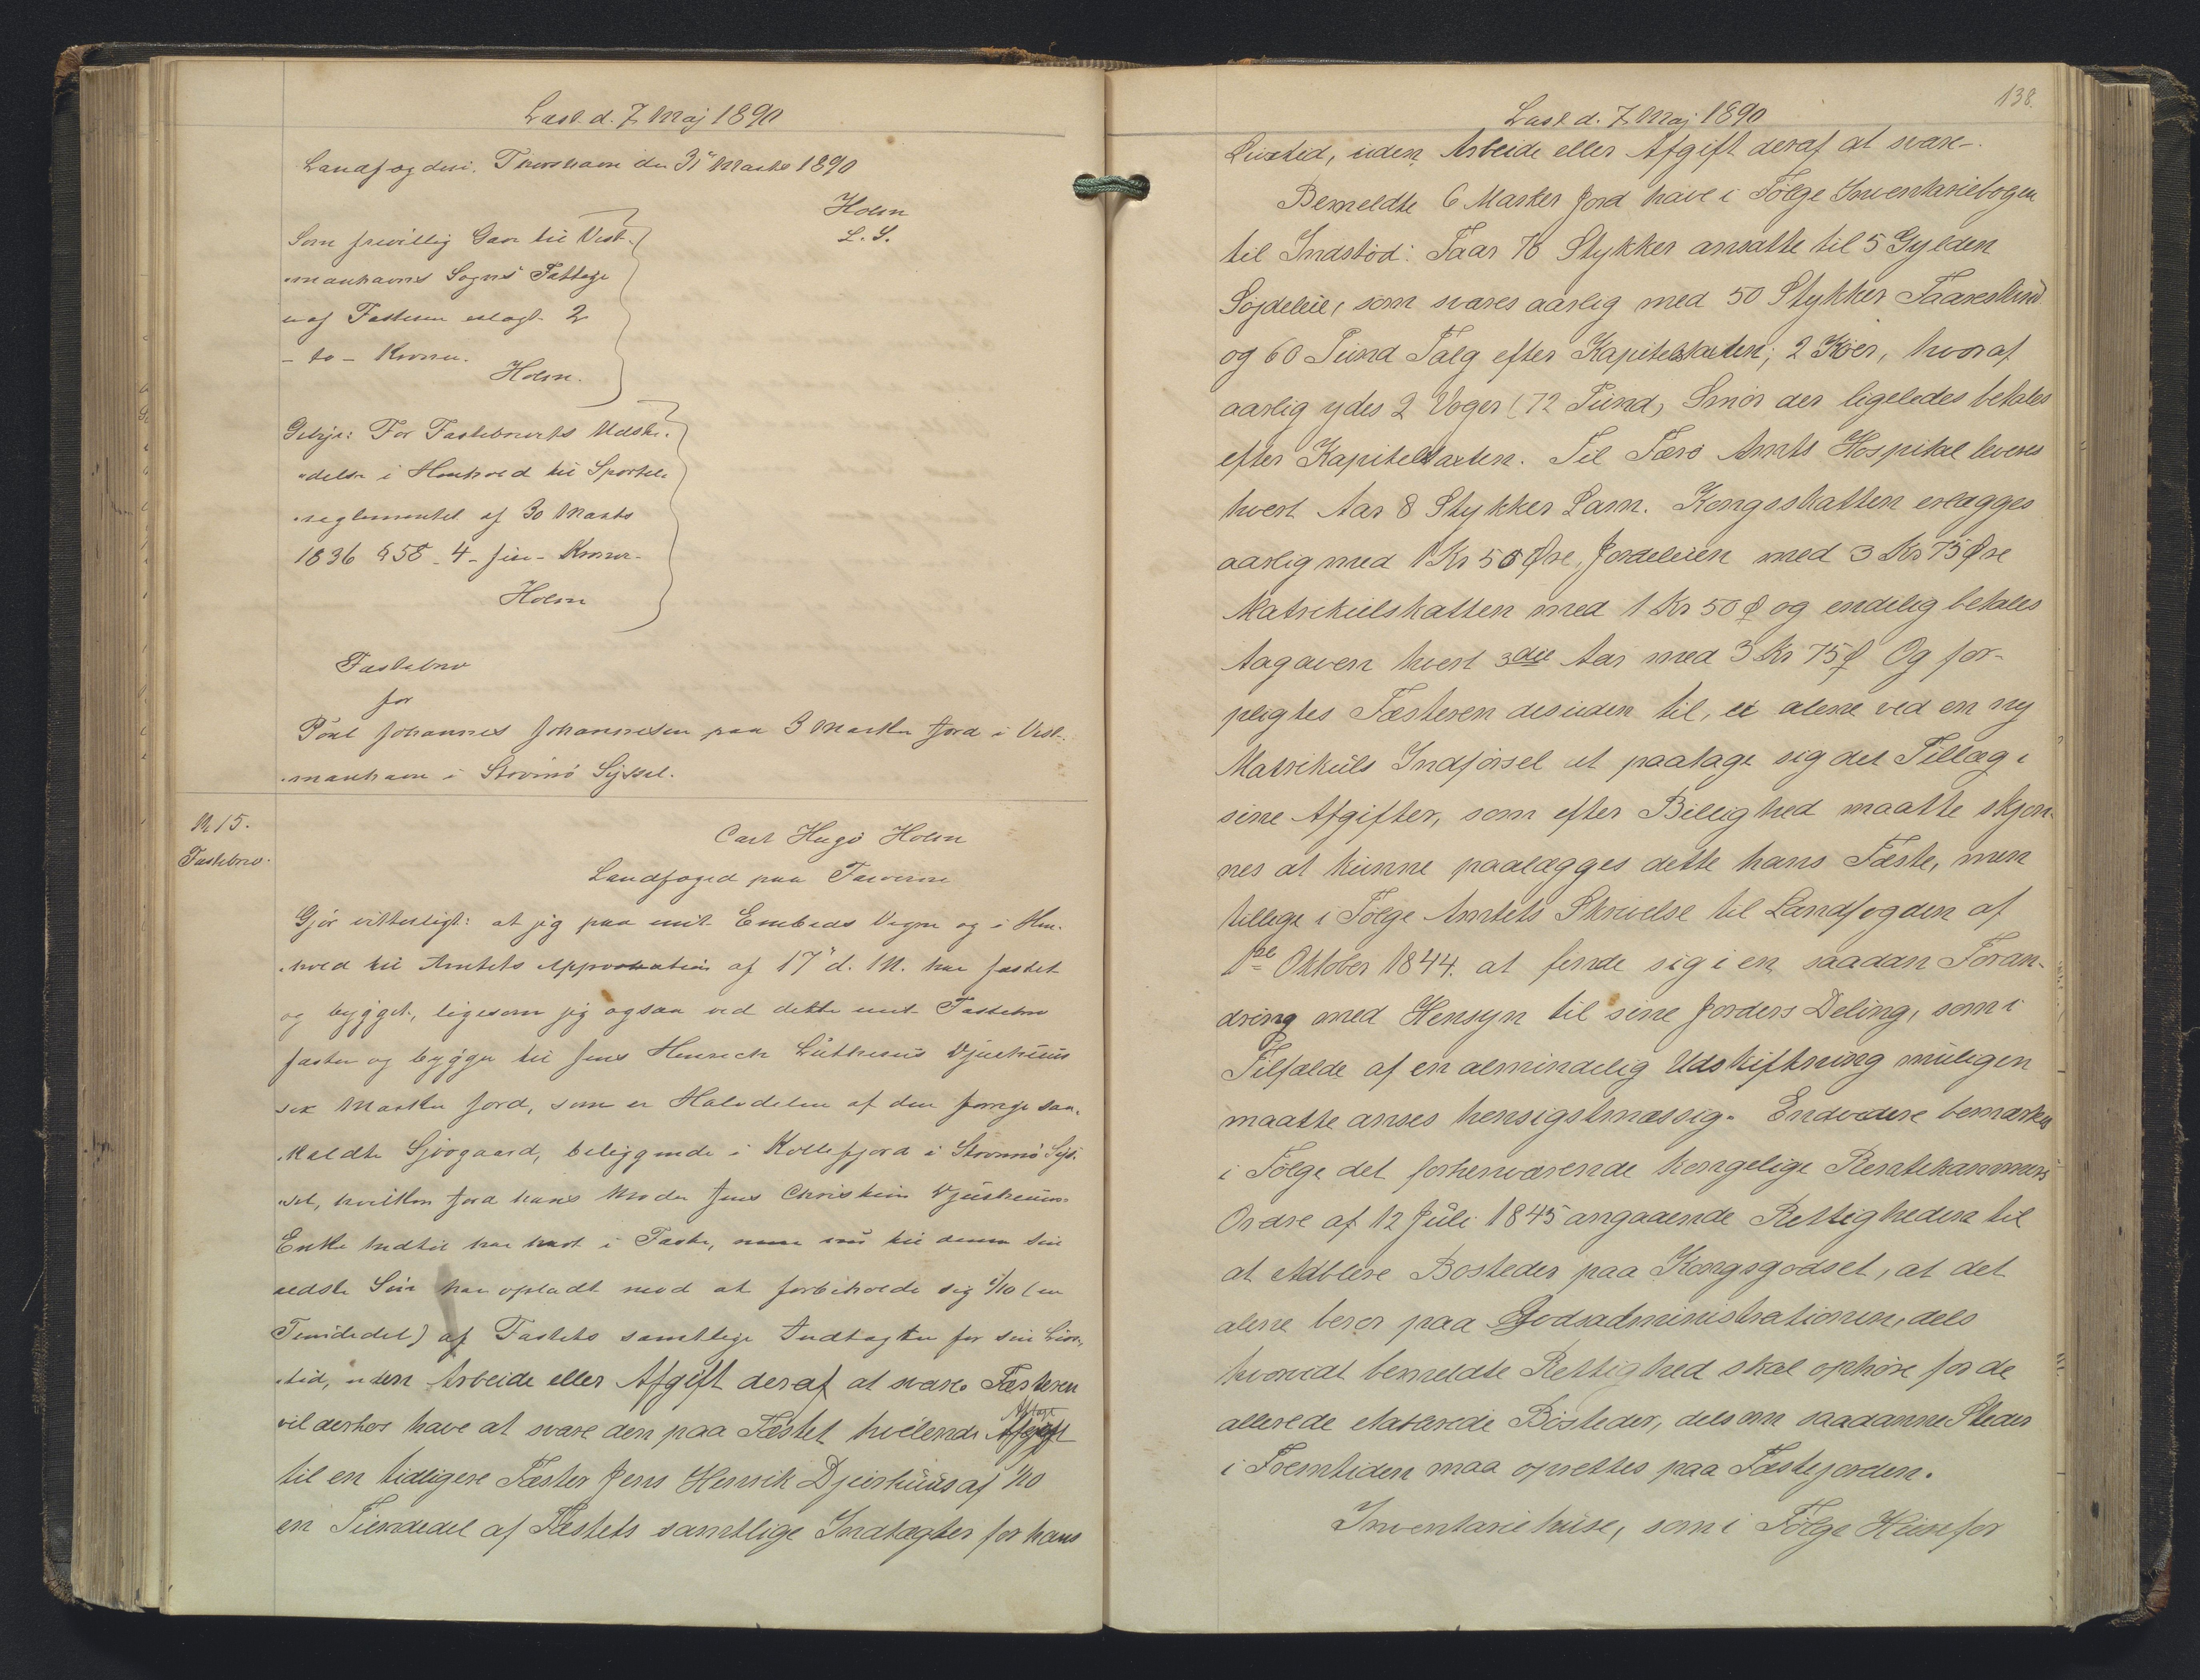 Læst d. 7 Maj 1890
Landfogderi. Thorshavn den 31' Marts 1890
Holm
L. S.
Som frivillig Gave til Vest-
manhavns Sogns Fattige
er af Fæsteren erlagt 2
- to - Kroner.
Holm.
Gebyr: For Fæstebrevets Udste-
delse i Henhold til Sportel-
reglementet af 30 Marts
1836 § 58 - 4 - fire - Kroner -
Holm
Fæstebrev
for
Poul Johannes Johannesen paa 3 Marker Jord i Vest-
manhavn i Strømø Syssel.
N 15.
Fæstebrev.
Carl Hugo Holm
Landfoged paa Færøerne
Gjør vitterligt: at jeg paa mit Embeds Vegne og i Hen-
hold til Amtets Approbation af 17' d. M. har fæstet
og bygget, ligesom jeg ogsaa ved dette mit Fæstebrev
fæster og bygger til Jens Henrich Lütherus Djurhuus
sex Marker Jord, som er Halvdelen af den forrige saa-
kaldte Sjovgaard, beliggende i Kollefjord i Strømø Sys-
sel, hvilken Jord hans Moder Jens Christian Djurhuus
Enke indtil har havt i Fæste, men nu til denne sin
ældste Søn har opladt mod at forbeholde sig 1/10 (en
Tiendedel) af Fæstets samtlige Indtægter for sin Livs-
tid, uden Arbeide eller Afgift deraf at svare. Fæsteren
vil derhos have at svare den paa Fæstet hvilende Aftægt
til en tidligere Fæster Jens Henrik Djurhuus af 1/10
en Tiendedel af Fæstets samtlige Indtægter for hans
138.
Læst d. 7 Maj 1890
Livstid, uden Arbeide eller Afgift deraf at svare -.
Bemeldte 6 Marker Jord have i Følge Inventariebogen
til Indstød: Faar 78 Stykker ansatte til 5 Gylden
Søjdeleie, som svares aarlig med 50 Stykker Faareskind
og 60 Pund Talg efter Kapitelstaxten; 2 Køer, hvoraf
aarlig ydes 2 Voger (72 Pund) Smør der ligeledes betales
efter Kapitelstaxten. Til Færø Amts Hospital leveres
hvert Aar 8 Stykker Lam. Kongsskatten erlægges
aarlig med 1 Kr 50 Øre, Jordeleien med 3 Kr 75 Øre
Matrikulskatten med 1 Kr 50 Ø og endelig betales
Tagaven hvert 3die Aar med 3 Kr 75 Ø Og for-
pligtes Fæsteren desuden til, ei alene ved en ny
Matrikuls Indførsel at paatage sig det Tillæg i
sine Afgifter, som efter Billighed maatte skjøn-
nes at kunne paalægges dette hans Fæste, men
tillige i Følge Amtets Skrivelse til Landfogden af
1ste Oktober 1844. at finde sig i en saadan Foran-
dring med Hensyn til sine Jorders Deling, som i
Tilfælde af en almindelig Udskiftning muligen
maatte anses hensigtsmæssig. Endvidere bemærkes
i Følge det forhenværende kongelige Rentekammers
Ordre af 12 Juli 1845 angaaende Rettigheden til
at etablere Bosteder paa Kongsgodset, at det
alene beror paa Godsadministrationen, dels
hvorvidt bemeldte Rettighed skal ophøre for de
allerede etablerede Bosteder, dels om saadanne Steder
i Fremtiden maa oprettes paa Fæstejorden.
Inventariehuse, som i Følge Huusfor